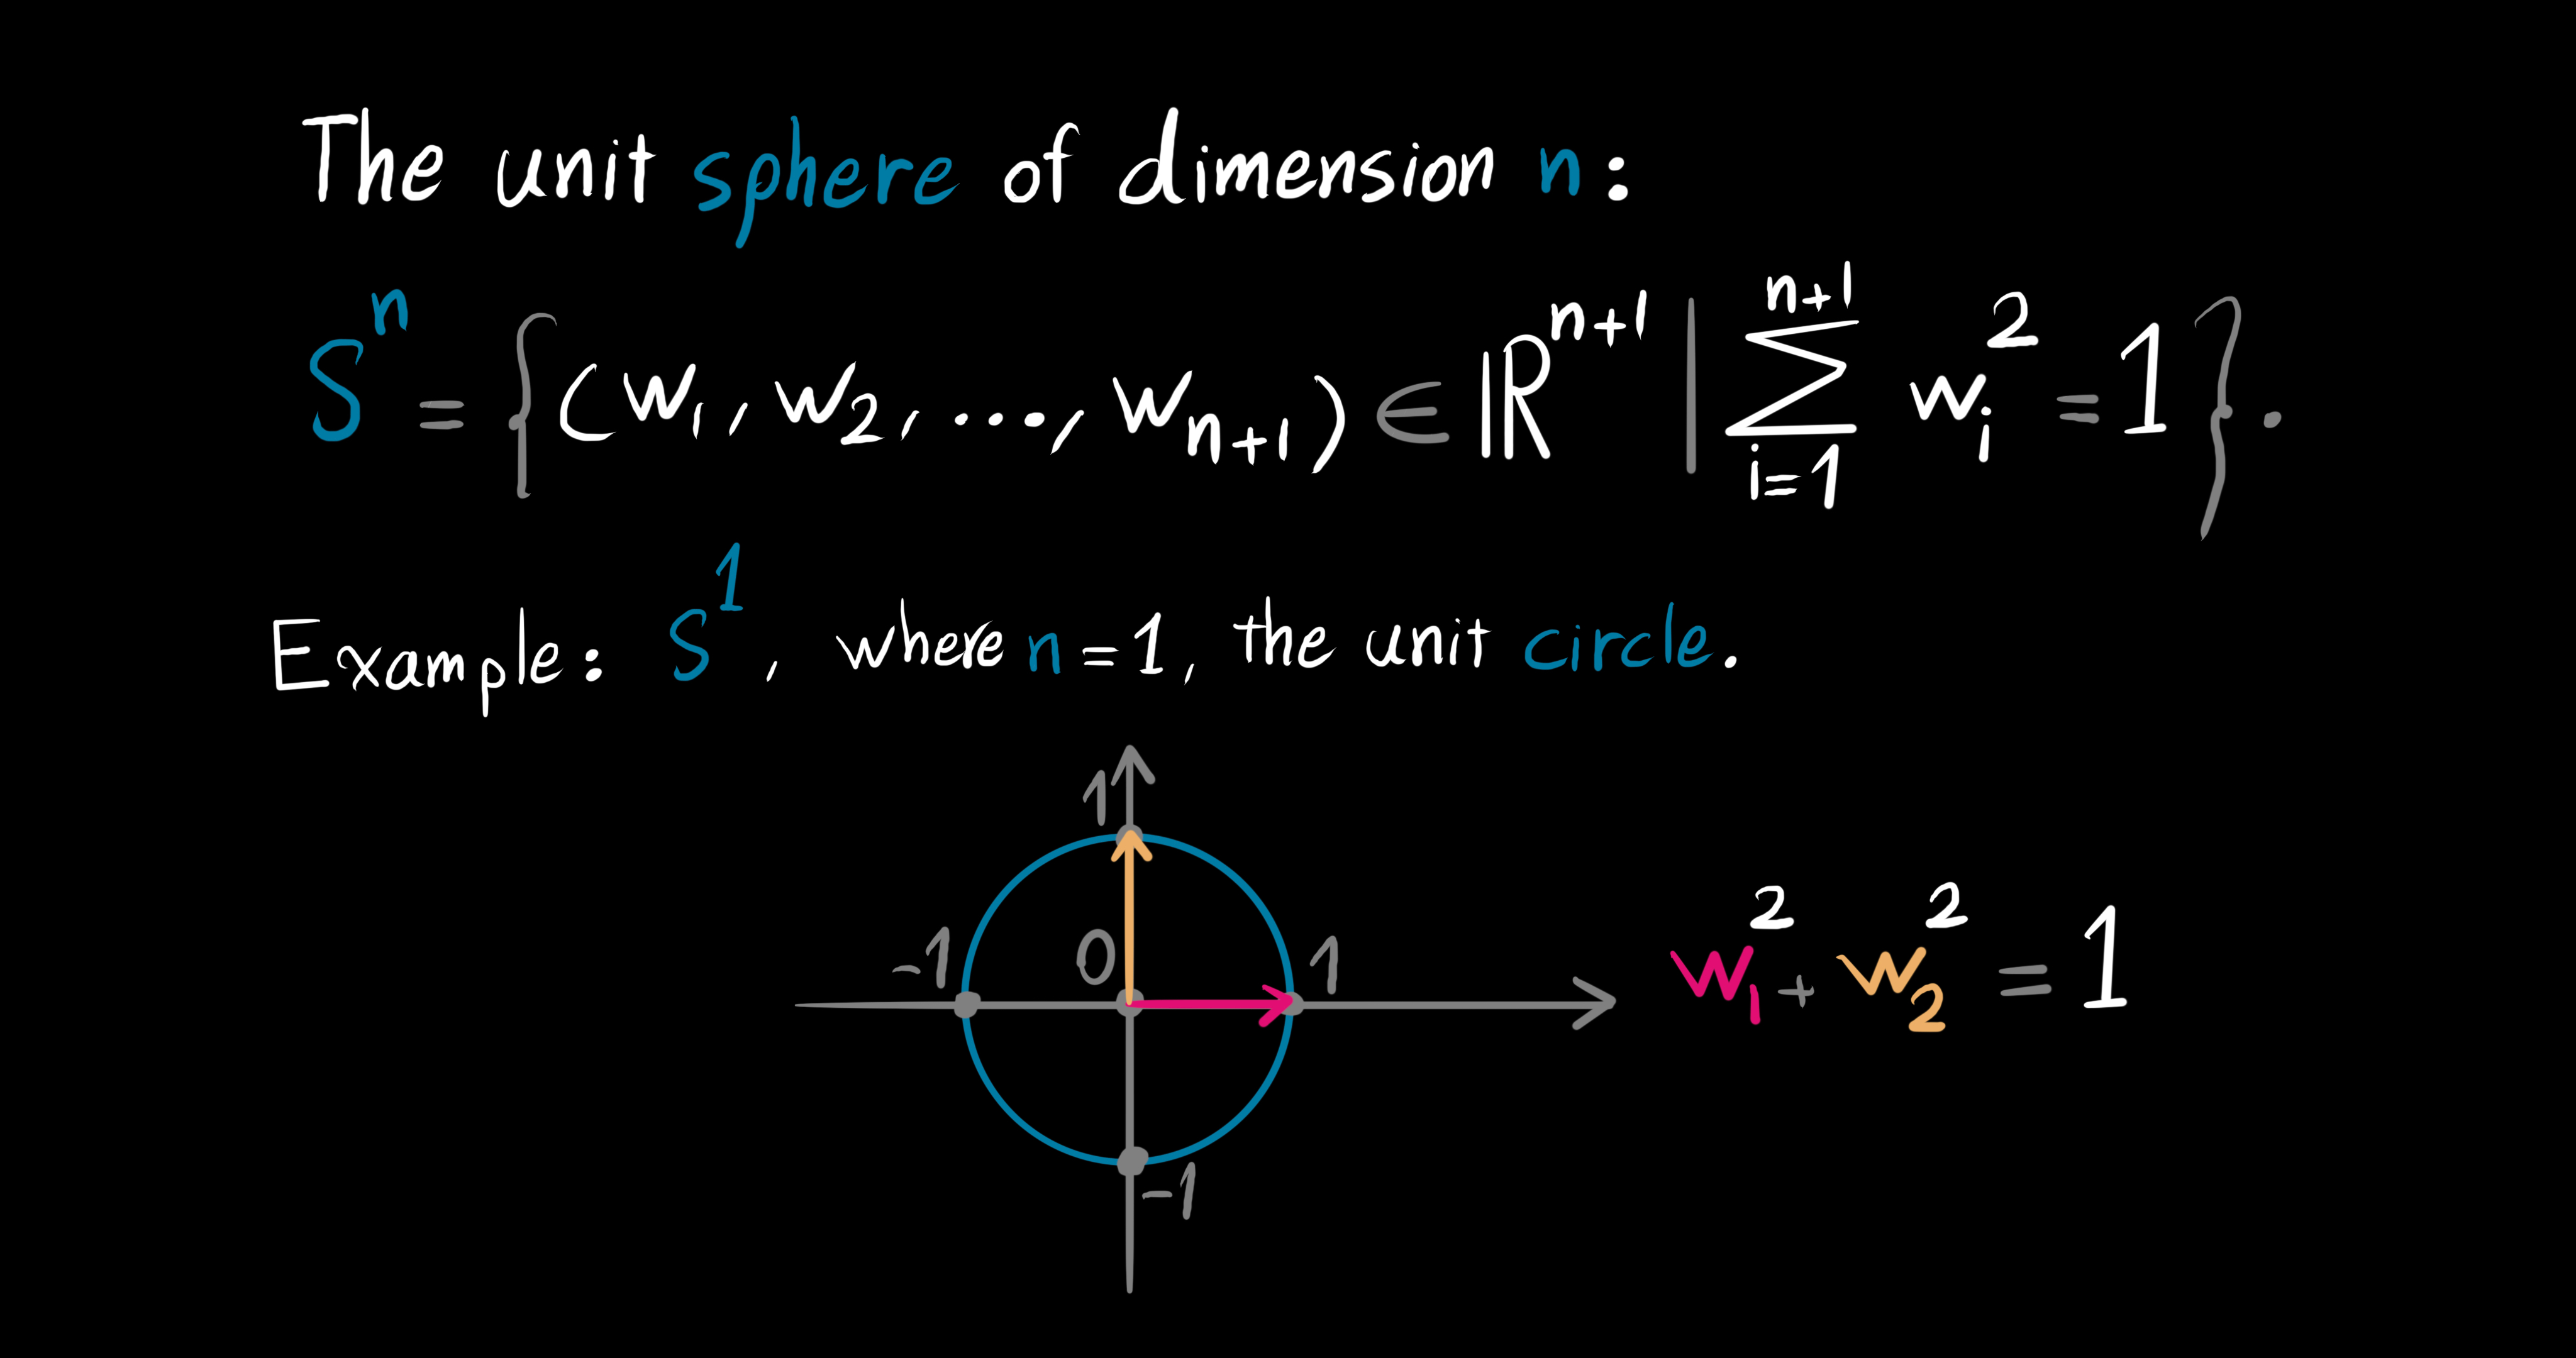 The unit sphere of dimension n:
Sⁿ = {(w₁, w₂, ..., wₙ₊₁) ∈ ℝⁿ⁺¹ | ∑ᵢ₌₁ⁿ⁺¹ wᵢ² = 1}.
Example: S¹, where n=1, the unit circle.
1
-1 0 1
w₁² + w₂² = 1
-1